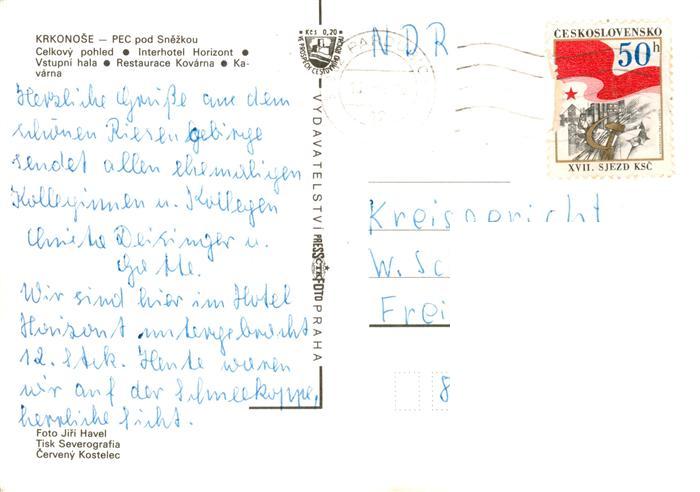 KRKONOŠE — PEC pod Sněžkou
Celkový pohled ● Interhotel Horizont ●
Vstupní hala ● Restaurace Kovárna ● Ka-
várna
Herzliche Grüße aus dem
schönen Riesengebirge
sendet allen ehemaligen
Kolleginnen u. Kollegen
Christa Deisinger u.
Gatte.
Wir sind hier im Hotel
Horizont untergebracht
12. Stck. Heute waren
wir auf der Schneekoppe,
herrliche Sicht.
Foto Jiří Havel
Tisk Severografia
Červený Kostelec
Kčs 0,20
VYDAVATELSTVÍ PRESSFOTO PRAHA
ČTK
NDR
ČESKOSLOVENSKO
50h
XVII. SJEZD KSČ
Kreisgericht
W. Sc
Frei
8